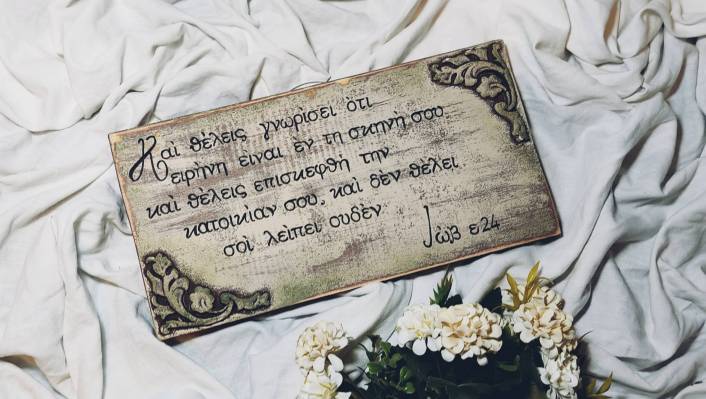 Καὶ θέλεις γνωρίσει ὅτι
εἰρήνη εἶναι ἐν τῇ σκηνῇ σου
καὶ θέλεις ἐπισκεφθῆ τὴν
κατοικίαν σου, καὶ δὲν θέλει
σοὶ λείπει οὐδὲν
Ἰώβ ε 24